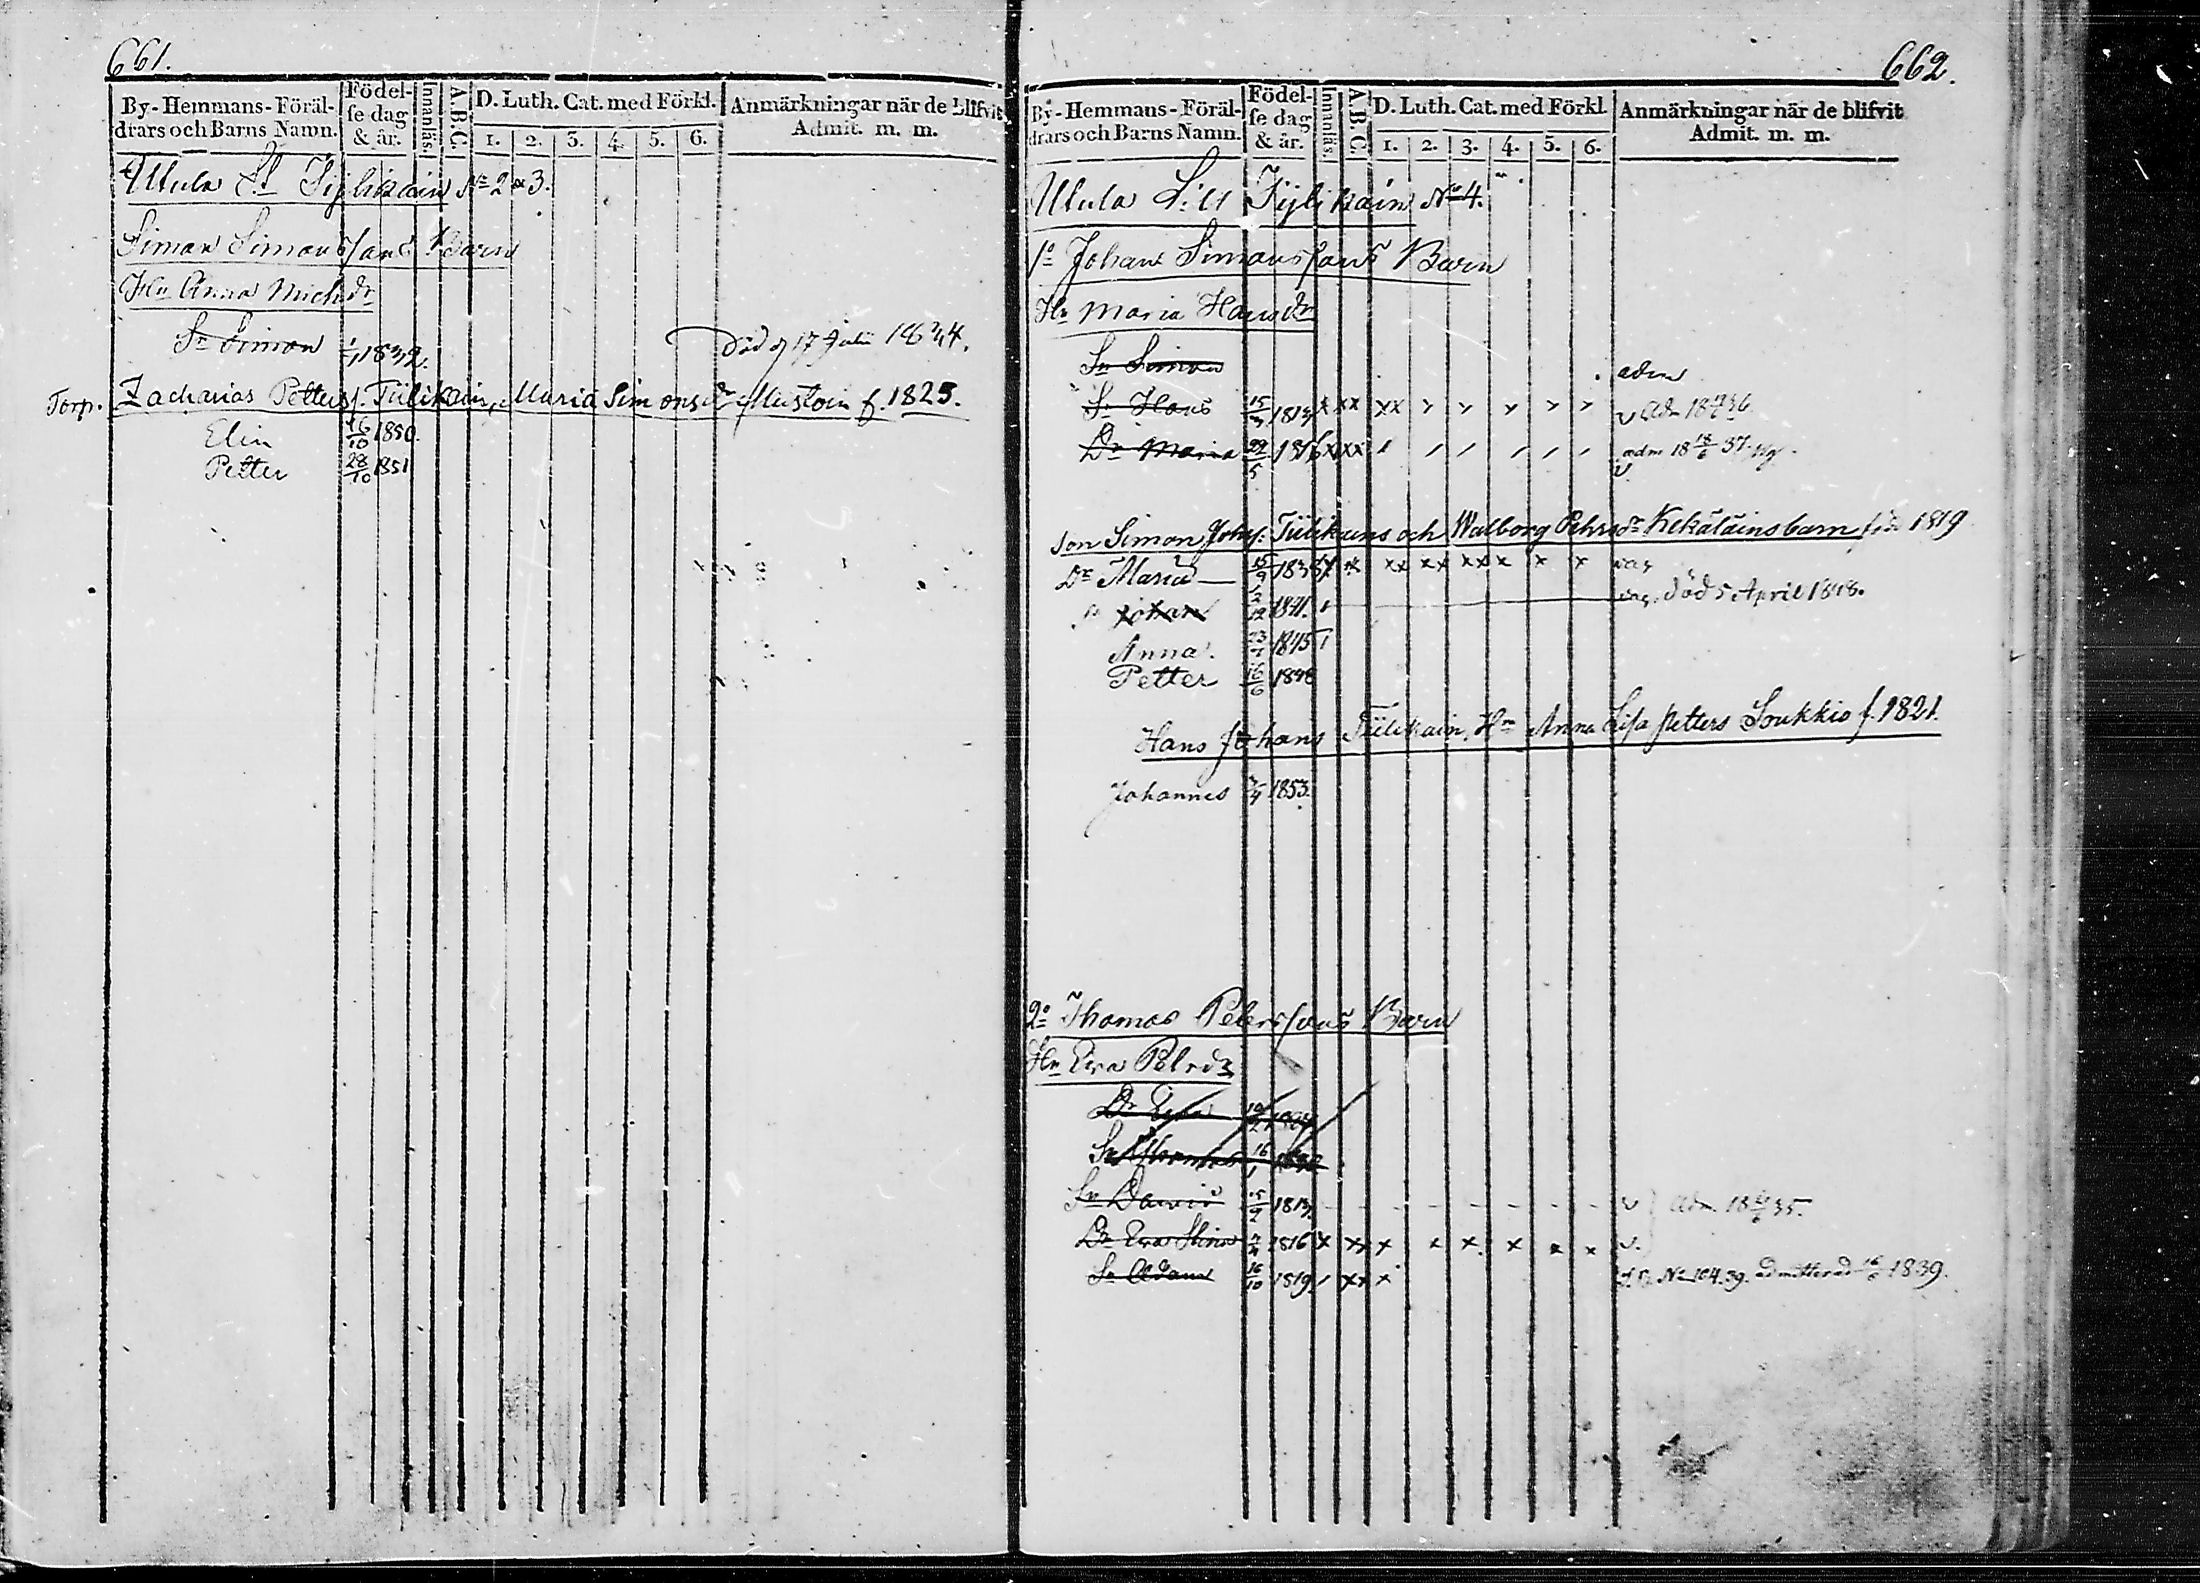 661.
By-Hemmans-Föräl-drars och Barns Namn. Födel-se dag & år. Innanläs. A.B.C. D. Luth. Cat. med Förkl. 1. 2. 3. 4. 5. 6. Anmärkningar när de blifvit Admit. m. m.
Utula Tijlikäin No 2 & 3.
Simon Simonssons Barn
Hu Anna Michsdr
Sn Simon 1832. Död d 17 Julii 1834.
Torp. Zacharias Petters. Tiilikain, Maria Simonsdr Mustoin f. 1825.
Elin 16/10 1850.
Petter 28/10 1851
662.
By-Hemmans-Föräl-drars och Barns Namn. Födel-se dag & år. Innanläs. A.B.C. D. Luth. Cat. med Förkl. 1. 2. 3. 4. 5. 6. Anmärkningar när de blifvit Admit. m. m.
Utula Tijlikäin No 4.
1o Johan Simonssons Barn
Hu Maria Hansdr
Sn Simon adm
Sn Hans 15/3 1813 x xx xx v Adm
Dr Maria 1816 xxxx adm 18 18/6 37. v
son Simon Johs: Tiilikains och Walborg Pehrsdr Kekäläins barn 1819
Dr Maria 15/9 1838 x x xx xx xx x x x
sn Johan 1841. död 5 April 1848.
Anna. 1845
Petter 16/6 1848
Hans Johans Tiilikain, Hru Anna Lisa Petters Soukkio f. 1821.
Johannes 1853.
2o Thomas Peterssons Barn
Hu Eva Petrdr
Dr Eva
Sn Thomas 16/1
Sn David 1813. v } Adm. 35.
Dr Eva Stina 1816 x xx x x x x x x v.
Sn Adam 16/10 1819 xx x No 104. 39. admitterad 1839.